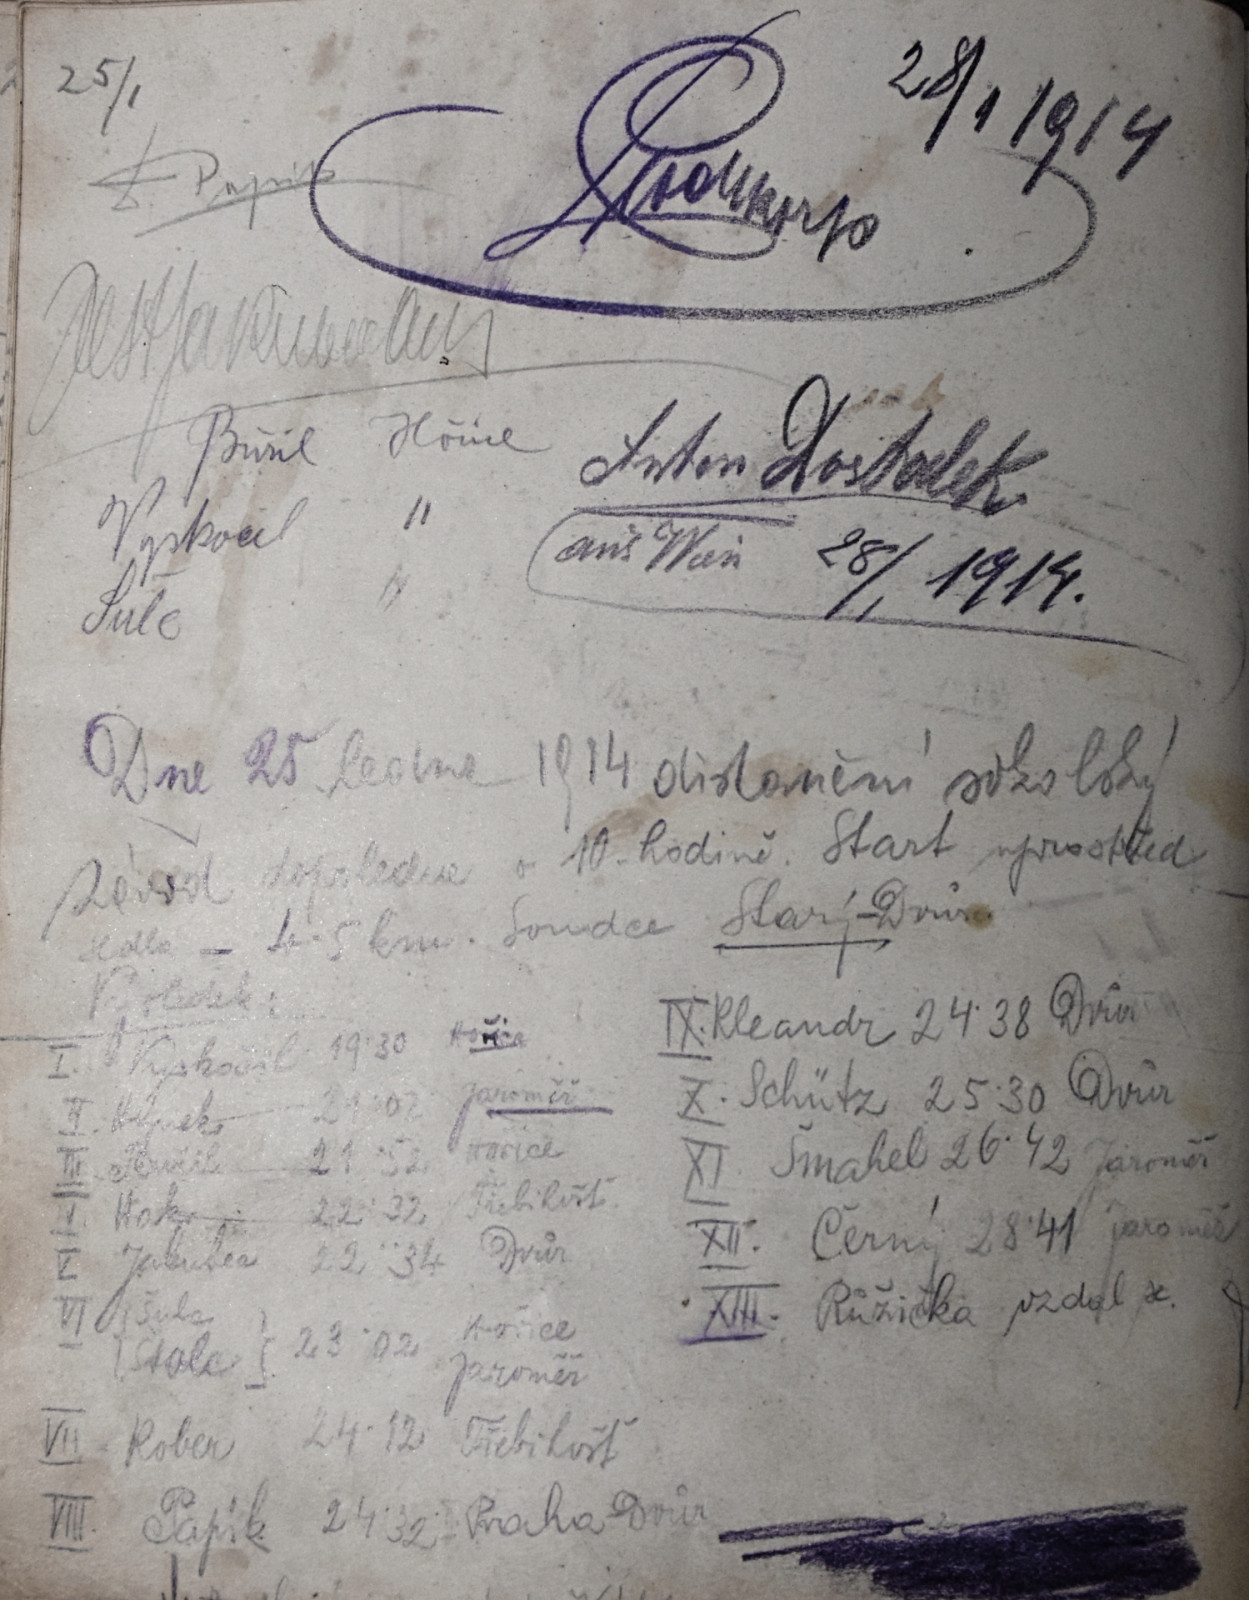 25/1
28/1 1914
F. Papík
Bušil Hořice
Vyskočil "
Šulc "
Anton Dostalek
aus Wien 28/1 1914.
Dne 25 ledna 1914 distanční sokolský
závod dopoledne o 10. hodině. Start uprostřed
4-5 km. Soudce Starý-Dvůr
Výsledek:
I. Vyskočil 19.30 Hořice
II. 21.02 Jaroměř
III. 21.52 Hořice
Hak 22.32 Třebihošť
V. 22.34 Dvůr
VI Šulc
Štola } 23.02 Hořice
Jaroměř
VII Rober 24.12 Třebihošť
VIII. Papík 24.32 - Praha Dvůr
IX. Kleandr 24.38 Dvůr
X. Schütz 25.30 Dvůr
XI. Šmahel 26.42 Jaroměř
XII. Černý 28.41 Jaroměř
XIII. Růžička vzdal